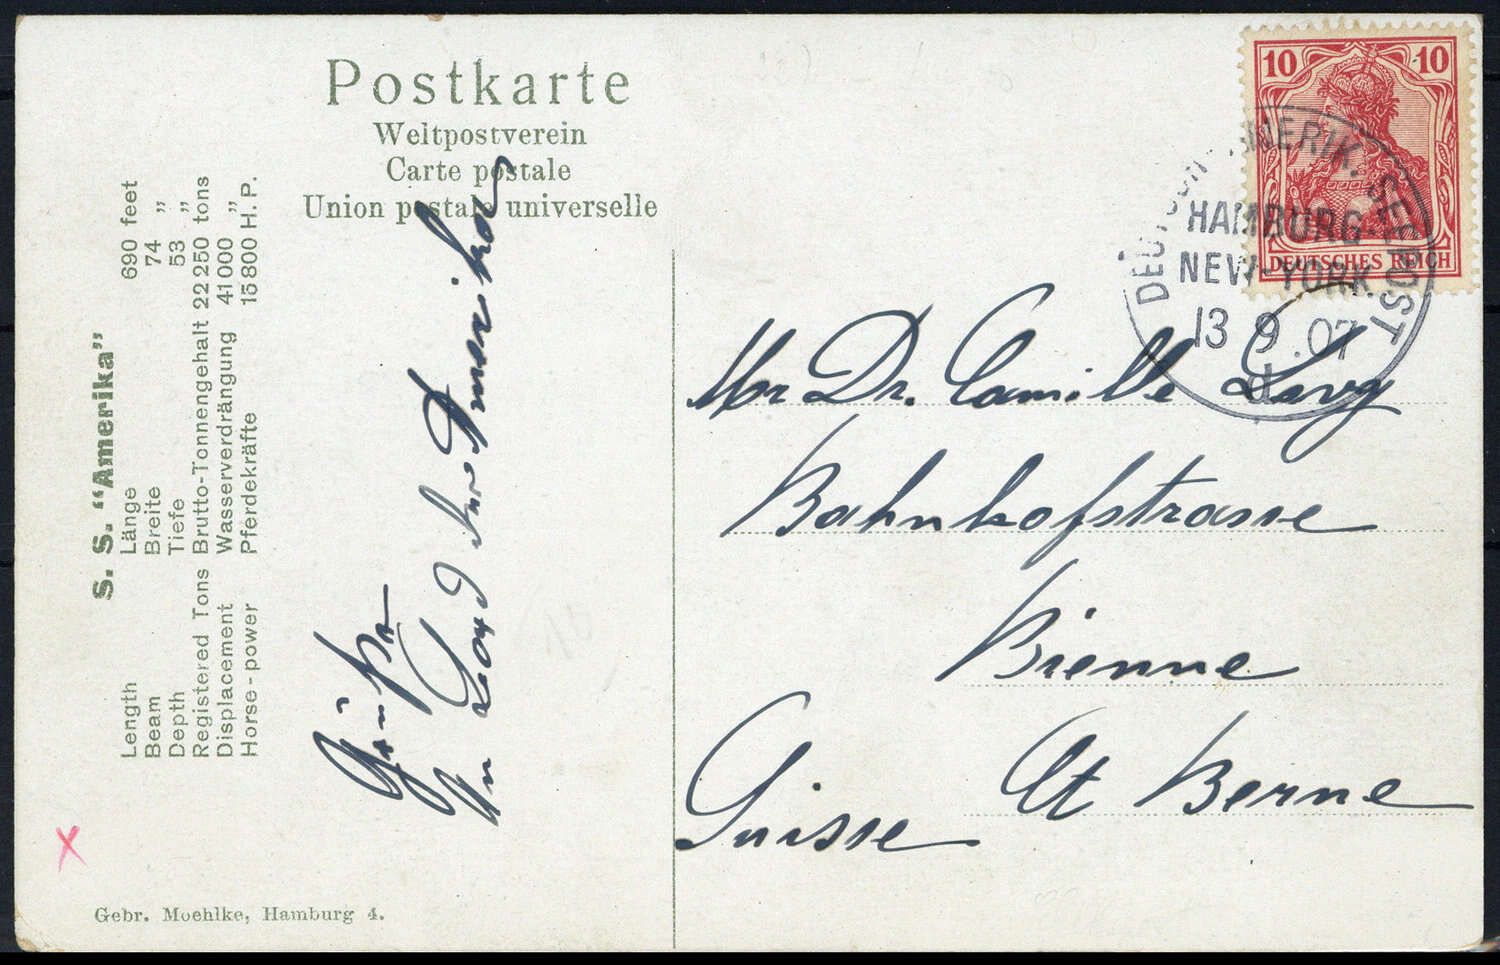 Postkarte
Weltpostverein
Carte postale
Union postale universelle
S. S. "Amerika"
Length Länge 690 feet
Beam Breite 74 "
Depth Tiefe 53 "
Registered Tons Brutto-Tonnengehalt 22250 tons
Displacement Wasserverdrängung 41000 "
Horse-power Pferdekräfte 15800 H. P.
An Bord der Amerika
Gebr. Moehlke, Hamburg 4.
10 10
DEUTSCHES REICH
DEUTSCH-AMERIK. SEEPOST
HAMBURG-
NEW-YORK.
13 9.07
d
Mr Dr. Camille Levy
Bahnhofstrasse
Bienne
Ct Berne
Suisse